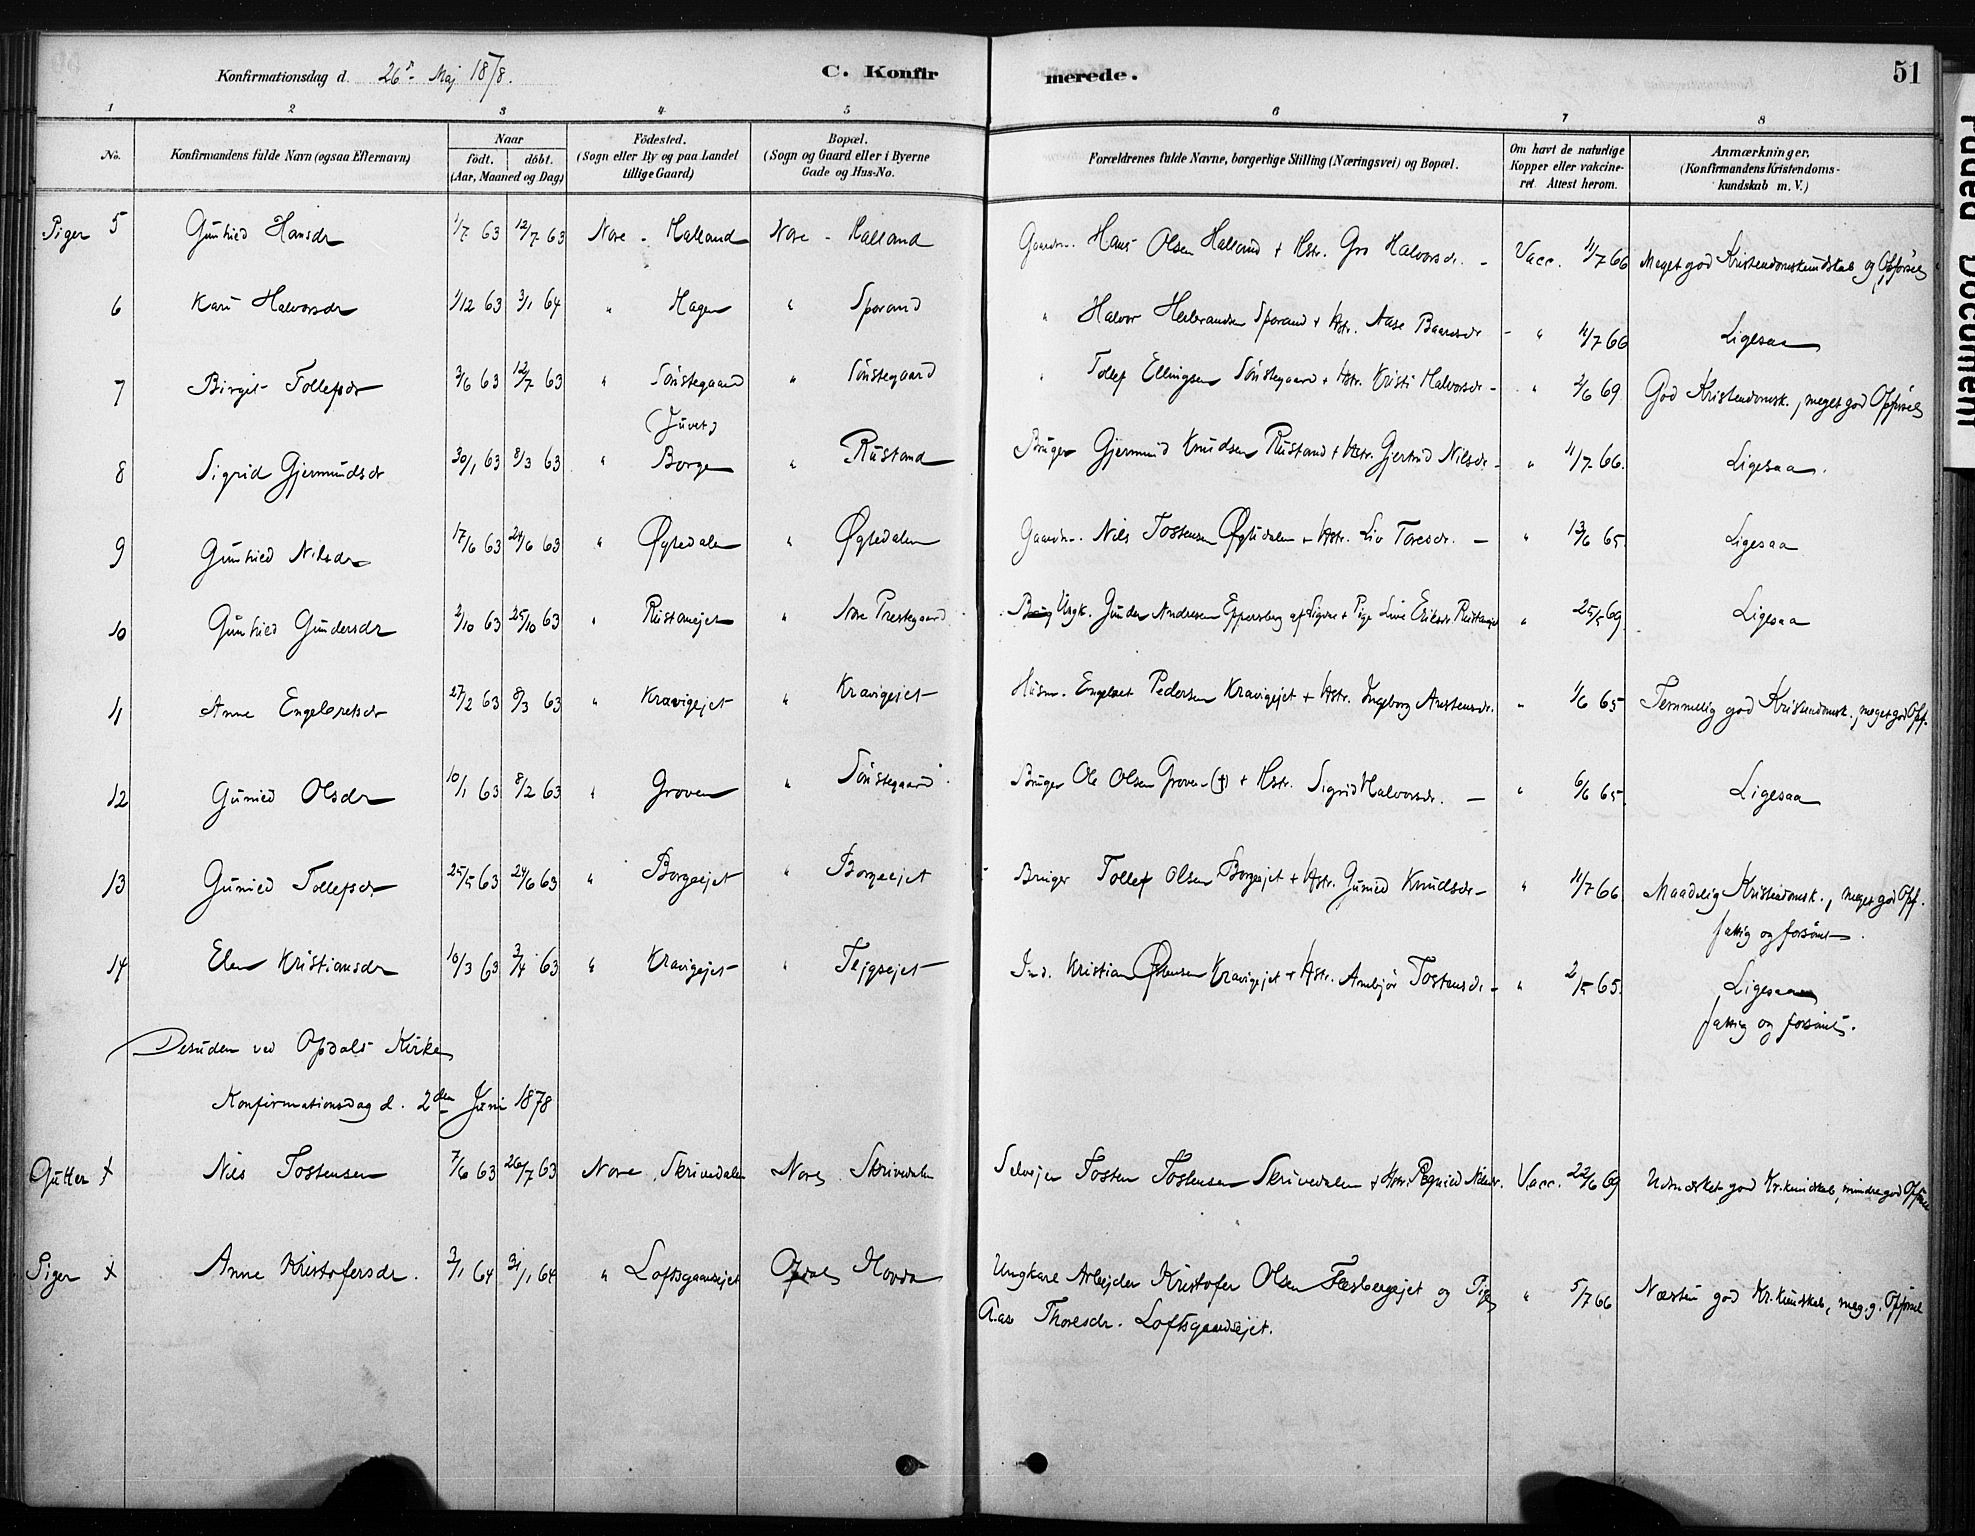 Konfirmationsdag d. 26de Maj 1878. C. Konfir merede. 51
1 2 3 4 5 6 7 8
No. Konfirmandens fulde Navn (ogsaa Efternavn) Naar födt. döbt. (Aar, Maaned og Dag) Födested. (Sogn eller By og paa Landet tillige Gaard) Bopæl. (Sogn og Gaard eller i Byerne Gade og Hus-No. Forældrenes fulde Navne, borgerlige Stilling (Næringsvei) og Bopæl. Om havt de naturlige Kopper eller vakcineret. Attest herom. Anmærkninger. (Konfirmandens Kristendomskundskab m. V.)
Piger 5 Gunhild Hansdr 1/7 63 12/7 63 Nore - Halland Nore - Halland Gaardm. Hans Olsen Halland + Hstr. Gro Halvorsdr. - Vacc. 11/7 66 Meget god Kristendomskundskab og Opførsel
6 Kari Halvorsdr 1/12 63 3/1 64 " Hagen " Sporand " Halvor Herbrandsen Sporand + Hstr. Aase Baardsdr - " 11/7 66 Ligesaa
7 Birgit Tollefsdr 3/6 63 12/7 63 " Sönstegaard " Sönstegaard " Tollef Ellingsen Sönstegaard + Hstr. Kristi Halvorsdr - " 2/6 69 God Kristendomsk., meget god Opførsel
(Juvet)
8 Sigrid Gjermundsdr 30/1 63 8/3 63 " Borge " Rustand Bruger Gjermund Knudsen Rustand + Hstr. Gjertrud Nilsdr - " 11/7 66. Ligesaa.
9 Gunhild Nilsdr 17/6 63 24/6 63 " Øgledalen " Øgledalen Gaardm. Nils Tostensen Øgledalen + Hstr. Liv Toresdr. - " 13/6 65. Ligesaa
10 Gunhild Gundersdr 2/10 63 25/10 63 " Rustanejet " Nore Prestegaard Ungk. Gunder Andersen Eppersberg af Sigdal + Pige Live Eriksdr Rustanejet " 25/5 69. Ligesaa
11 Anne Engebretsdr 27/2 63 8/3 63 " Kravigejet " Kravigejet Husm. Engebret Pedersen Kravigejet + Hstr. Ingeborg Anstensdr. " 1/6 65 Temmelig god Kristendomsk., meget god Opf.
12 Gunild Olsdr 10/1 63 8/2 63 " Groven " Sönstegaard. Bruger Ole Olsen Groven (†) + Hstr. Sigrid Halvorsdr. - " 6/6 65. Ligesaa
13 Gunild Tollefsdr 25/5 63 24/6 63 " Borgeejet " Borgeejet Bruger Tollef Olsen Borgeejet + Hstr. Gunild Knudsdr - " 11/7 66 Maadelig Kristendomsk., meget god Opf.
fattig og forsömt.
14 Elen Kristiansdr 10/3 63 3/4 63 " Kravigejet " Ind. Kristian Østensen Kravigejet + Hstr. Annbjör Tostensdr - " 2/5 65. Ligesaa
fattig og forsömt.
Desuden ved Opdals Kirke
Konfirmationsdag d. 2den Juni 1878
Gutter 1 Nils Tostensen 7/6 63 26/7 63 Nore Skrivedalen Nore Skrivedalen Selvejer Tosten Tostensen Skrivedalen + Hstr. Ragnild Nilsdr. Vacc. 22/6 69 Udmærket god Kr.kundskab, mindre god Opførsel
Piger 1 Anne Kristofersdr. 2/1 64 31/1 64 " Loftsgaardsejet Opdal Hovda Ungkarl Arbejder Kristofer Olsen Fæsbergejet og Pige " 5/7 66 Næsten god Kr.kundskab, meg. g. Opførsel
Aase Thoresdr. Loftsgaardsejet.
Faded Document